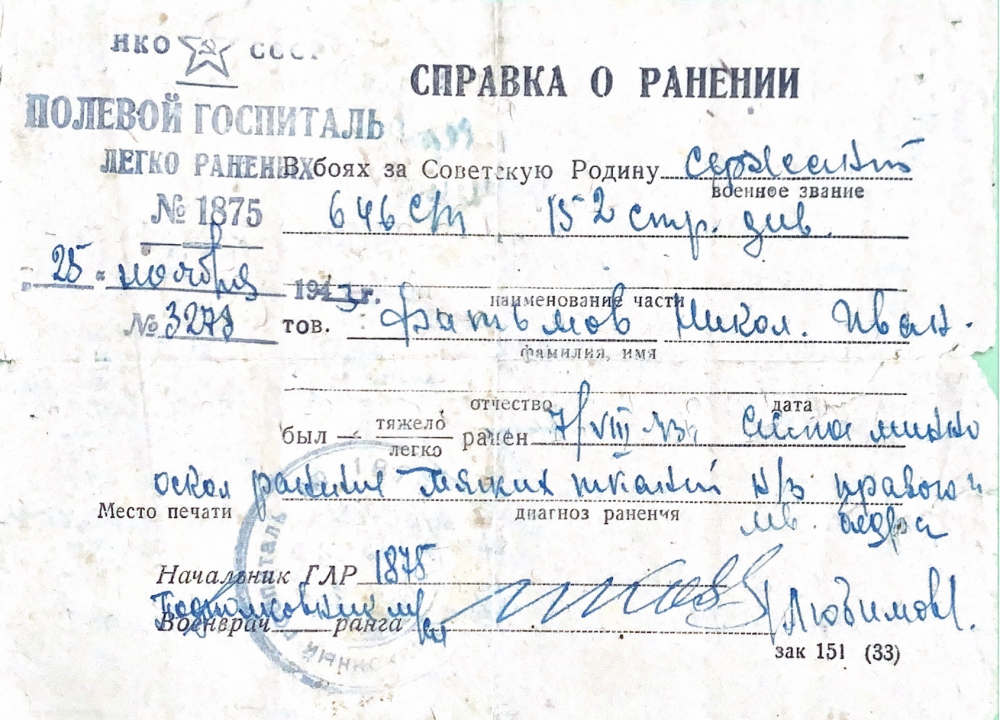 НКО СССР
СПРАВКА О РАНЕНИИ
ПОЛЕВОЙ ГОСПИТАЛЬ
ЛЕГКО РАНЕНЫХ
№ 1875
"25" ноября 1943 г.
№ 3278
В боях за Советскую Родину сержант
военное звание
646 СП 152 стр. див.
наименование части
тов. Никол. Иван.
фамилия, имя
отчество дата
был — тяжело
легко
ранен 7/VIII 43г. минно
оскол ранение мягких тканей н/з правого и
Место печати диагноз ранения
лев. бедра
Начальник ГЛР 1875
Подполковник м/с
Военврач ранга Любимов
зак 151 (33)